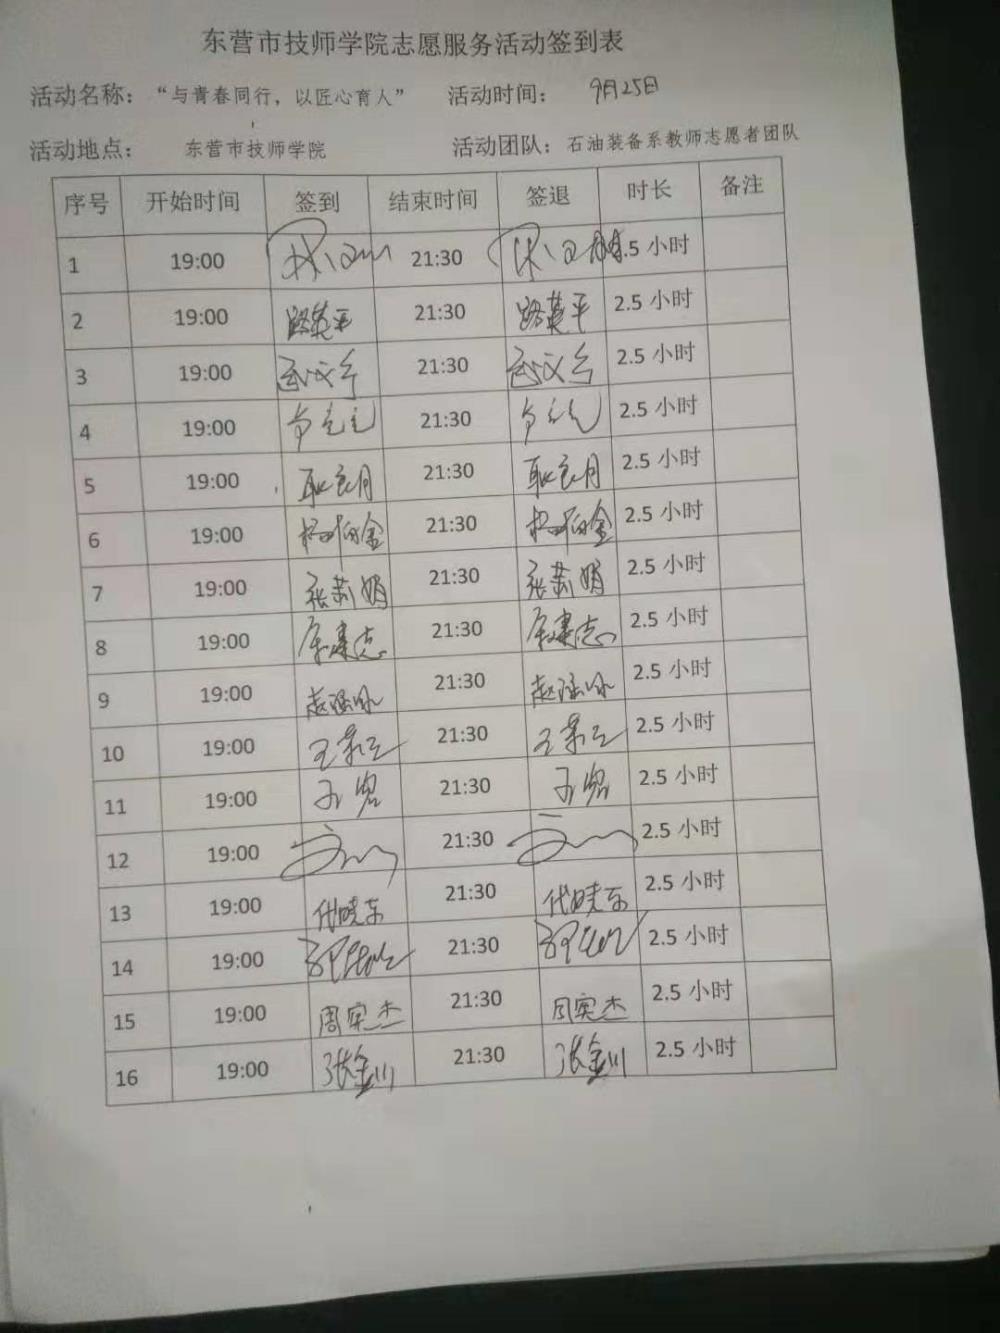 东营市技师学院志愿服务活动签到表
活动名称：“与青春同行，以匠心育人” 活动时间： 9月25日
活动地点： 东营市技师学院 活动团队：石油装备系教师志愿者团队
序号 开始时间 签到 结束时间 签退 时长 备注
1 19:00 21:30 .5 小时
2 19:00 路英平 21:30 路英平 2.5 小时
3 19:00 21:30 2.5 小时
4 19:00 21:30 2.5 小时
5 19:00 耿良月 21:30 耿良月 2.5 小时
6 19:00 21:30 2.5 小时
7 19:00 张莉娟 21:30 张莉娟 2.5 小时
8 19:00 21:30 2.5 小时
9 19:00 21:30 2.5 小时
10 19:00 21:30 2.5 小时
11 19:00 21:30 2.5 小时
12 19:00 21:30 2.5 小时
13 19:00 代晓东 21:30 代晓东 2.5 小时
14 19:00 21:30 2.5 小时
15 19:00 周实杰 21:30 周实杰 2.5 小时
16 19:00 张金川 21:30 张金川 2.5 小时